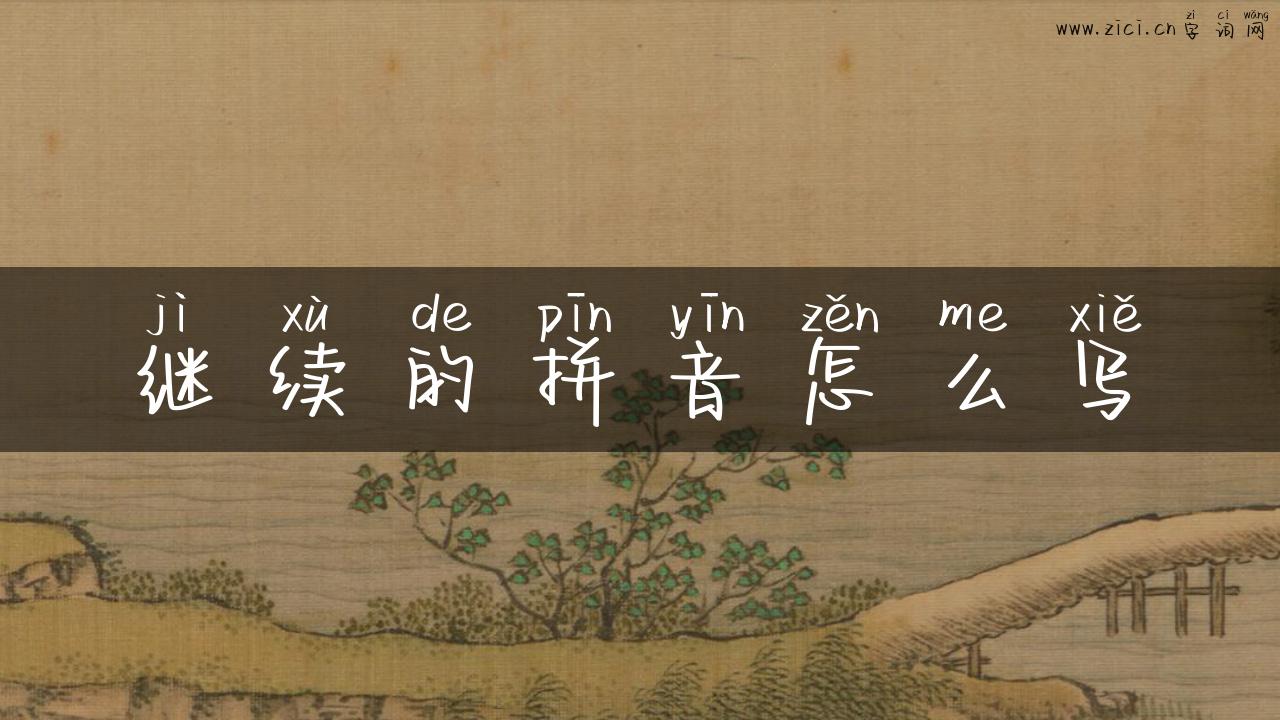 zì cí wǎng
www.zici.cn 字词网
jì xù de pīn yīn zěn me xiě
继续的拼音怎么写